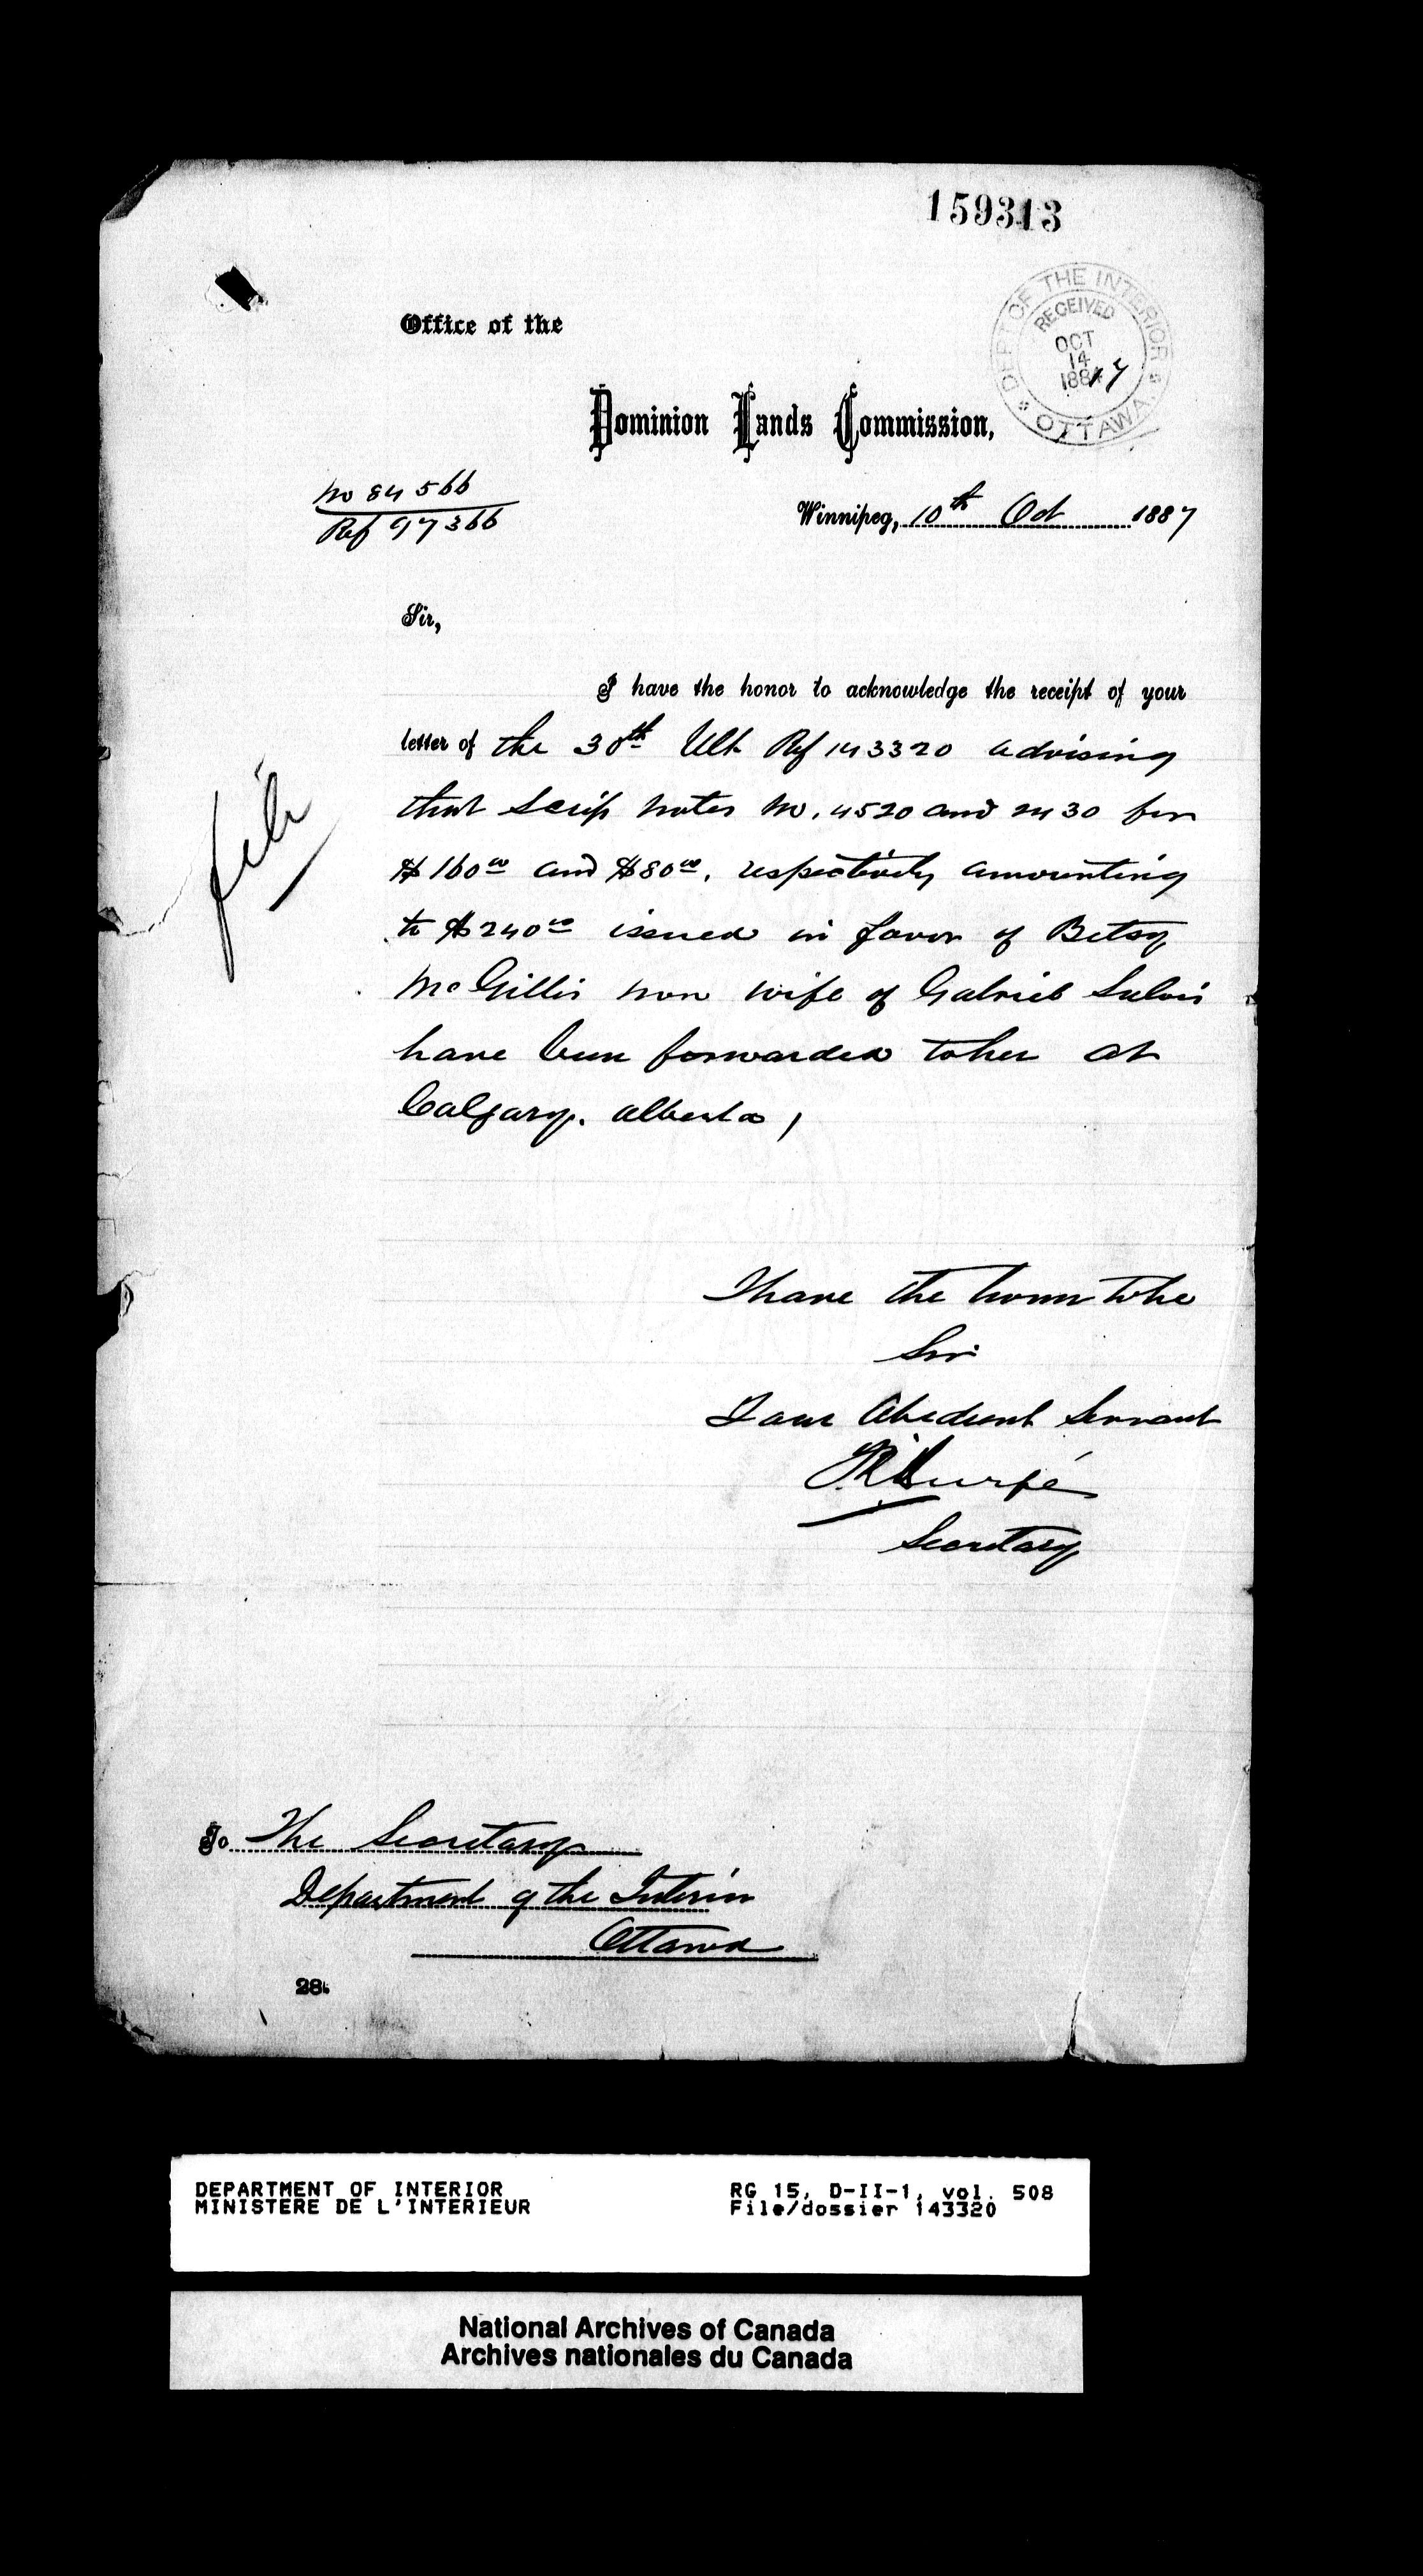 159313
DEPT OF THE INTERIOR
RECEIVED
OCT
14
1887
OTTAWA.
Office of the
Dominion Lands Commission,
No 84566
Ref 97366
Winnipeg, 10th Oct 1887
Sir,
I have the honor to acknowledge the receipt of your
letter of the 30th Ult Ref 143320 advising
that Scrip notes No. 4520 and 2430 for
$160.00 and $80.00, respectively amounting
to $240.00 issued in favor of Betsy
McGillis now wife of Gabriel
have been forwarded to her at
Calgary. Alberta,
file
I have the honor to be
Sir
Your Obedient Servant
Secretary
To The Secretary
Department of the Interior
Ottawa
28.
DEPARTMENT OF INTERIOR RG 15, D-II-1, vol. 508
MINISTERE DE L'INTERIEUR File/dossier 143320
National Archives of Canada
Archives nationales du Canada